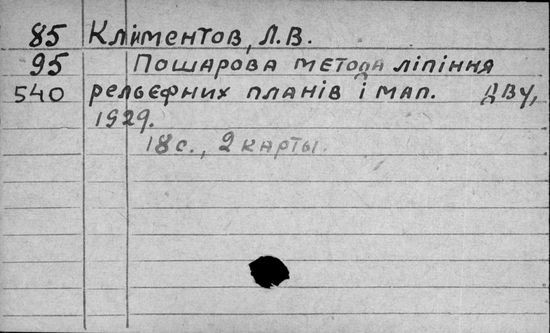 85 Климентов, Л.В.
95 Пошарова метода ліпіння
540 рельєфних планів і мап. ДВУ,
1929.
18 с., 2 карты.